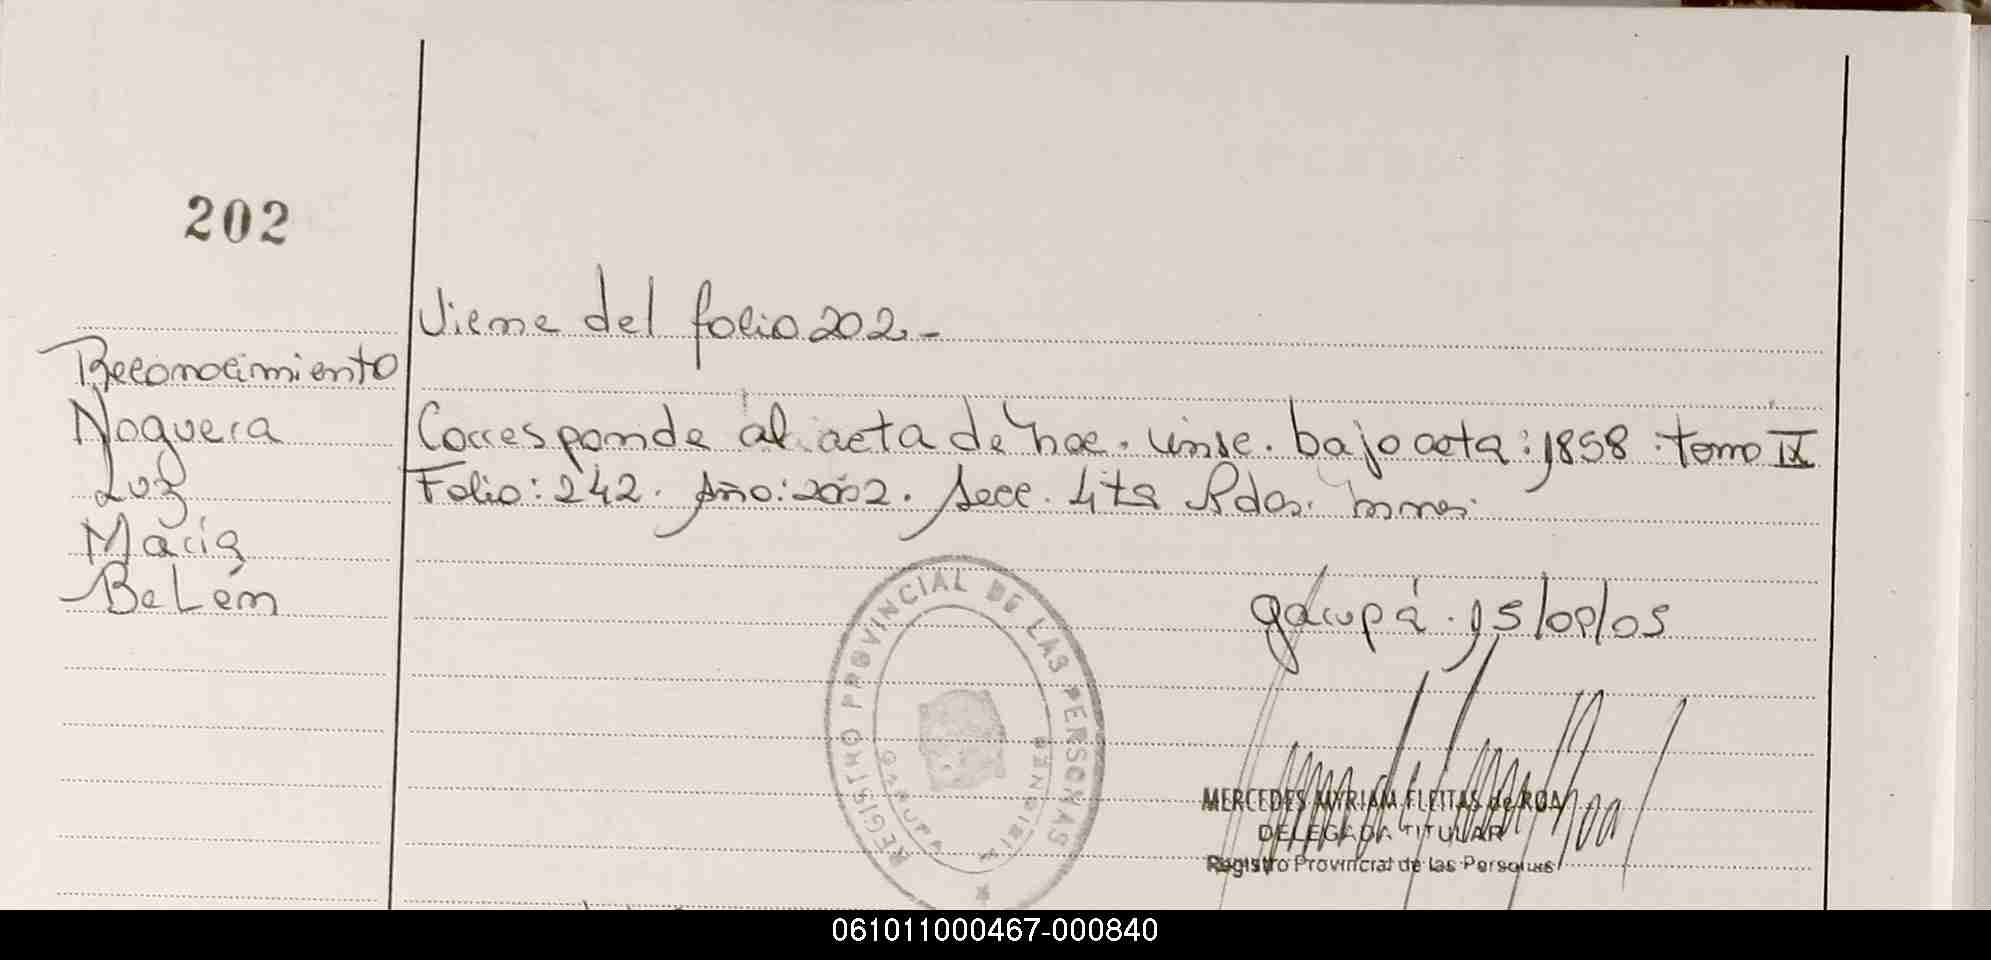 202
Viene del folio 202.-
Reconocimiento
Noguera
Luz
María
Belém
Corresponde al acta de nac. insc. bajo acta: 1858. tomo IX
Folio: 242. Año: 2002. Secc. 4ta Pdas.
Garupá. 15/09/05
REGISTRO PROVINCIAL DE LAS PERSONAS
GARUPA MISIONES
MERCEDES MYRIAM FLEITAS de ROA
DELEGADA TITULAR
Registro Provincial de las Personas
061011000467-000840